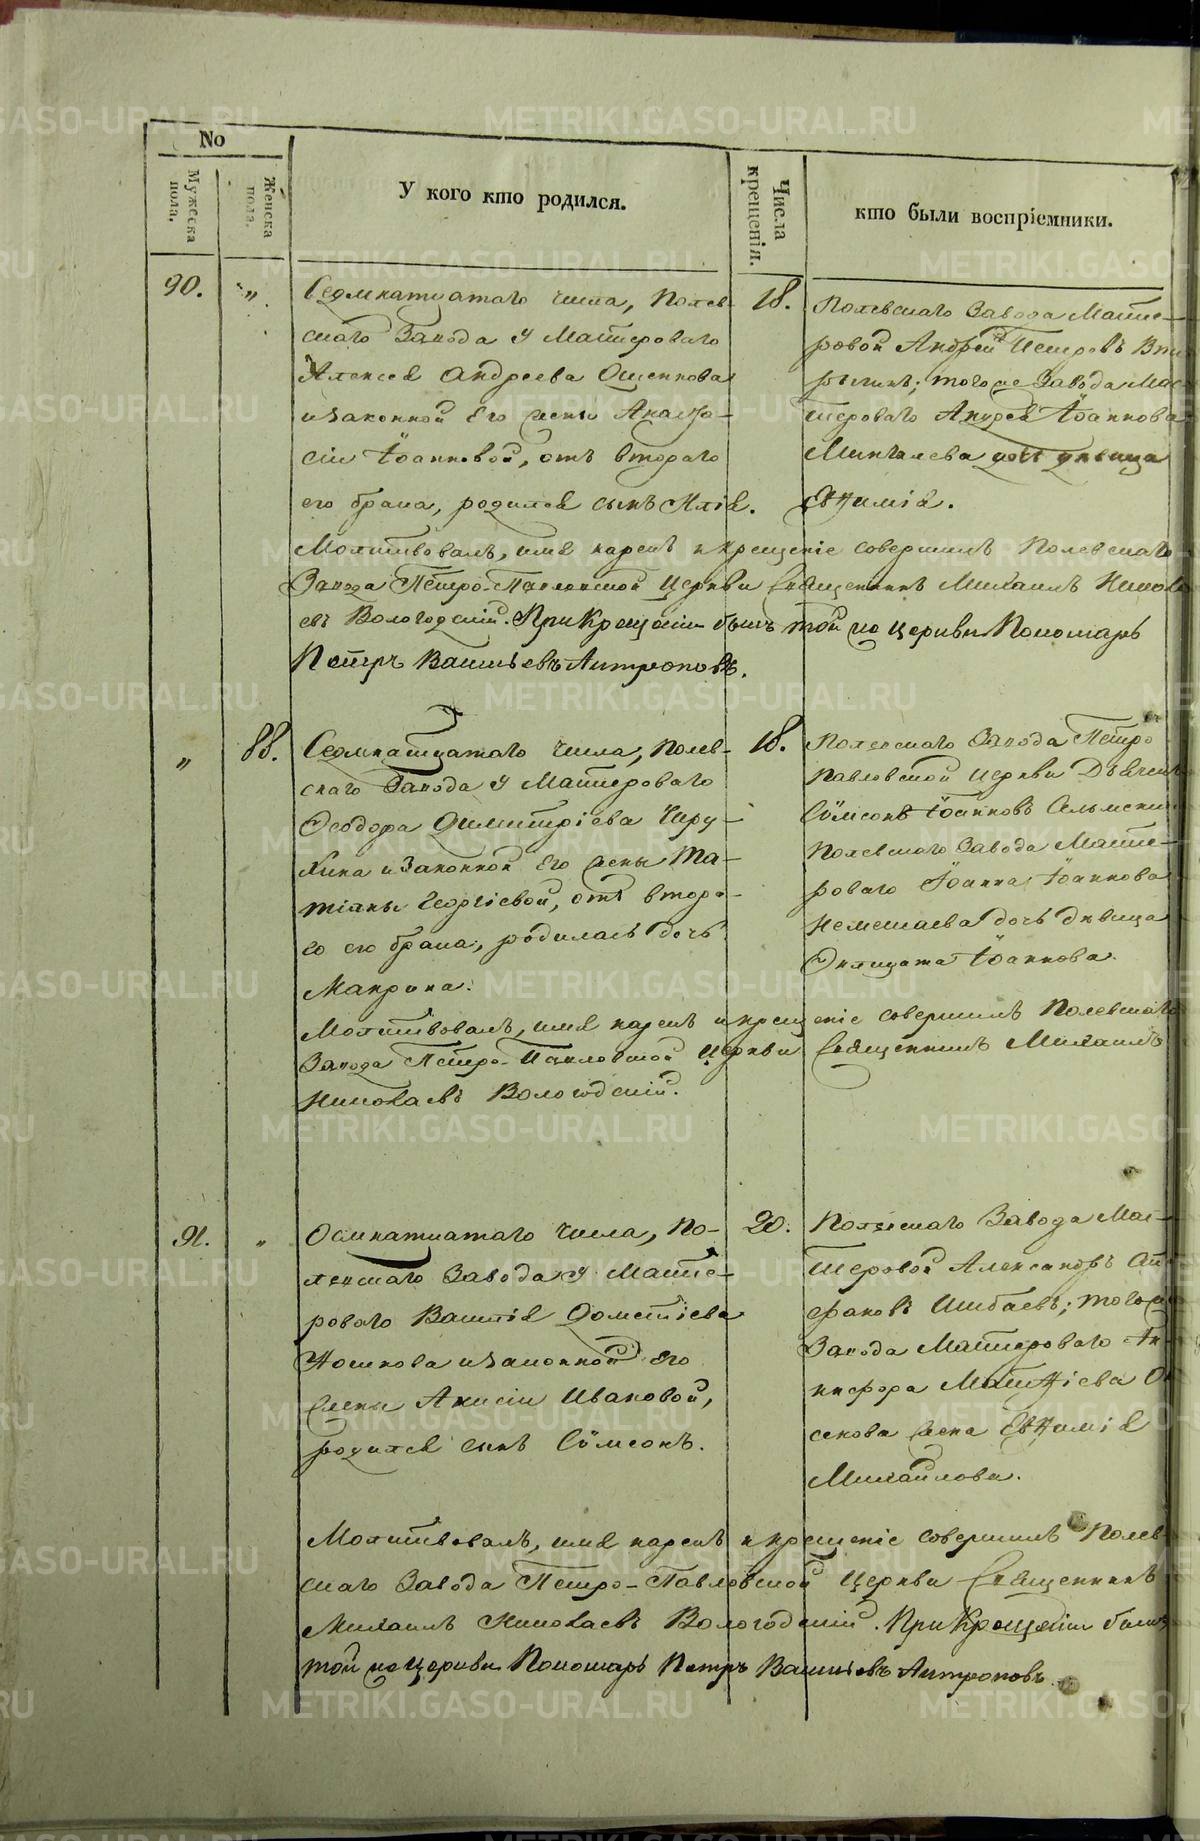 No
Мужеска пола.
Женска пола.
У кого кто родился.
Числа крещенія.
кто были воспріемники.
90. „
Седмнатцатаго числа, Полев-
скаго Завода у Мастероваго
Алексея Андреева
и законной его жены Анаста-
сіи Іоанновой, отъ втораго
его брака, родился сынъ Илія.
18.
Полевскаго Завода Масте-
ровой Андрей Петровъ
того же Завода Мас-
тероваго Андрея Іоаннова
дочь девица
Евѳимія.
Молитвовалъ, имя нарекъ и крещеніе совершилъ Полевскаго
Завода Петро-Павловской Церкви Священникъ Михаилъ Никола-
евъ Вологодскій. При Крещеніи былъ той же Церкви Пономарь
Петръ Васильевъ Антроповъ.
„ 88.
Седмнатцатаго числа, Полев-
скаго Завода у Мастероваго
Ѳеодора Димитріева Чиру-
хина и Законной Его жены Та-
тіаны Георгіевой, отъ второ-
го его брака, родилась дочь
Макрина.
18.
Полевскаго Завода Петро
Павловской Церкви Дьячекъ
Сѵмеонъ Іоанновъ
Полевскаго Завода Масте-
роваго Іоанна Іоаннова
Немешаева дочь девица
Іоаннова.
Молитвовалъ, имя нарекъ и крещеніе совершилъ Полевскаго
Завода Петро-Павловской Церкви Священникъ Михаилъ
Николаевъ Вологодскій.
91. „
Осмнатцатаго числа, По-
левскаго Завода у Масте-
роваго Василія Дометіева
и законной Его
жены Анисіи Ивановой,
родился сынъ Сѵмеонъ.
20.
Полевскаго Завода Мас-
теровой Александръ
того же
Завода Мастероваго
Матѳіева
жена Евѳимія
Михайлова.
Молитвовалъ, имя нарекъ и крещеніе совершилъ Полев-
скаго Завода Петро-Павловской Церкви Священникъ
Михаилъ Николаевъ Вологодскій. При Крещеніи былъ
той же Церкви Пономарь Петръ Васильевъ Антроповъ.
METRIKI.GASO-URAL.RU